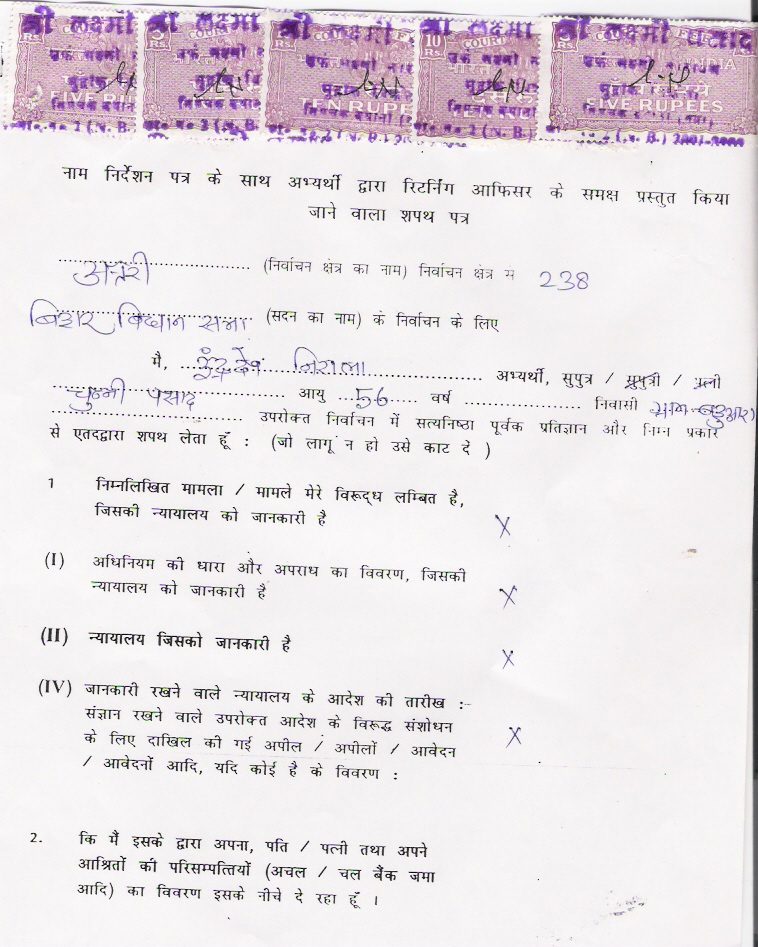 श्री लक्ष्मी श्री लक्ष्मी श्री लक्ष्मी प्रसाद
RS. COURT 10 RS. COURT FEE
भारत INDIA
FIVE TEN RUPE FIVE RUPEES
नाम निर्देशन पत्र के साथ अभ्यर्थी द्वारा रिटर्निंग आफिसर के समक्ष प्रस्तुत किया
जाने वाला शपथ पत्र
अतरी (निर्वाचन क्षेत्र का नाम) निर्वाचन क्षेत्र स 238
बिहार विधान सभा (सदन का नाम) के निर्वाचन के लिए
मै, इंद्रदेव निराला अभ्यर्थी, सुपुत्र / सुपुत्री / पत्नी
चुन्नी प्रसाद आयु 56 वर्ष निवासी ग्राम-
उपरोक्त निर्वाचन में सत्यनिष्ठा पूर्वक प्रतिज्ञान और निम्न प्रकार
से एतदद्वारा शपथ लेता हूँ : (जो लागू न हो उसे काट दे )
1 निम्नलिखित मामला / मामले मेरे विरूद्ध लम्बित है,
जिसकी न्यायालय को जानकारी है X
(I) अधिनियम की धारा और अपराध का विवरण, जिसकी
न्यायालय को जानकारी है X
(II) न्यायालय जिसको जानकारी है X
(IV) जानकारी रखने वाले न्यायालय के आदेश की तारीख :-
संज्ञान रखने वाले उपरोक्त आदेश के विरूद्ध संशोधन
के लिए दाखिल की गई अपील / अपीलों / आवेदन X
/ आवेदनों आदि, यदि कोई है के विवरण :
2. कि मैं इसके द्वारा अपना, पति / पत्नी तथा अपने
आश्रितों की परिसम्पत्तियों (अचल / चल बैंक जमा
आदि) का विवरण इसके नीचे दे रहा हूँ ।